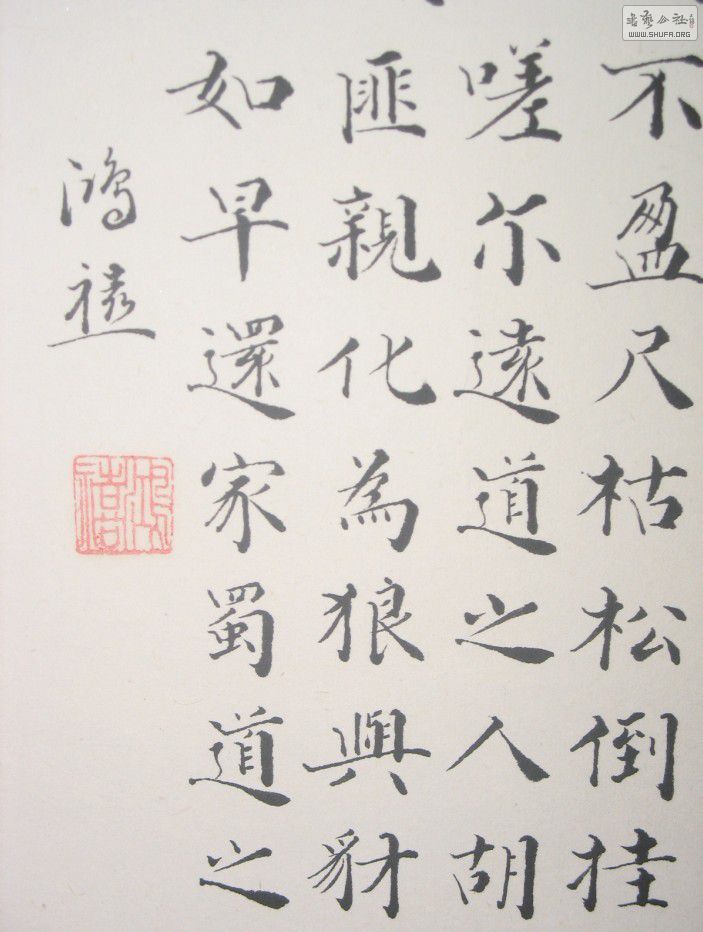 不盈尺枯松倒挂
嗟尔遠道之人胡
匪親化為狼與豺
如早還家蜀道之
鴻禧
鴻禧
書藝公社
WWW.SHUFA.ORG